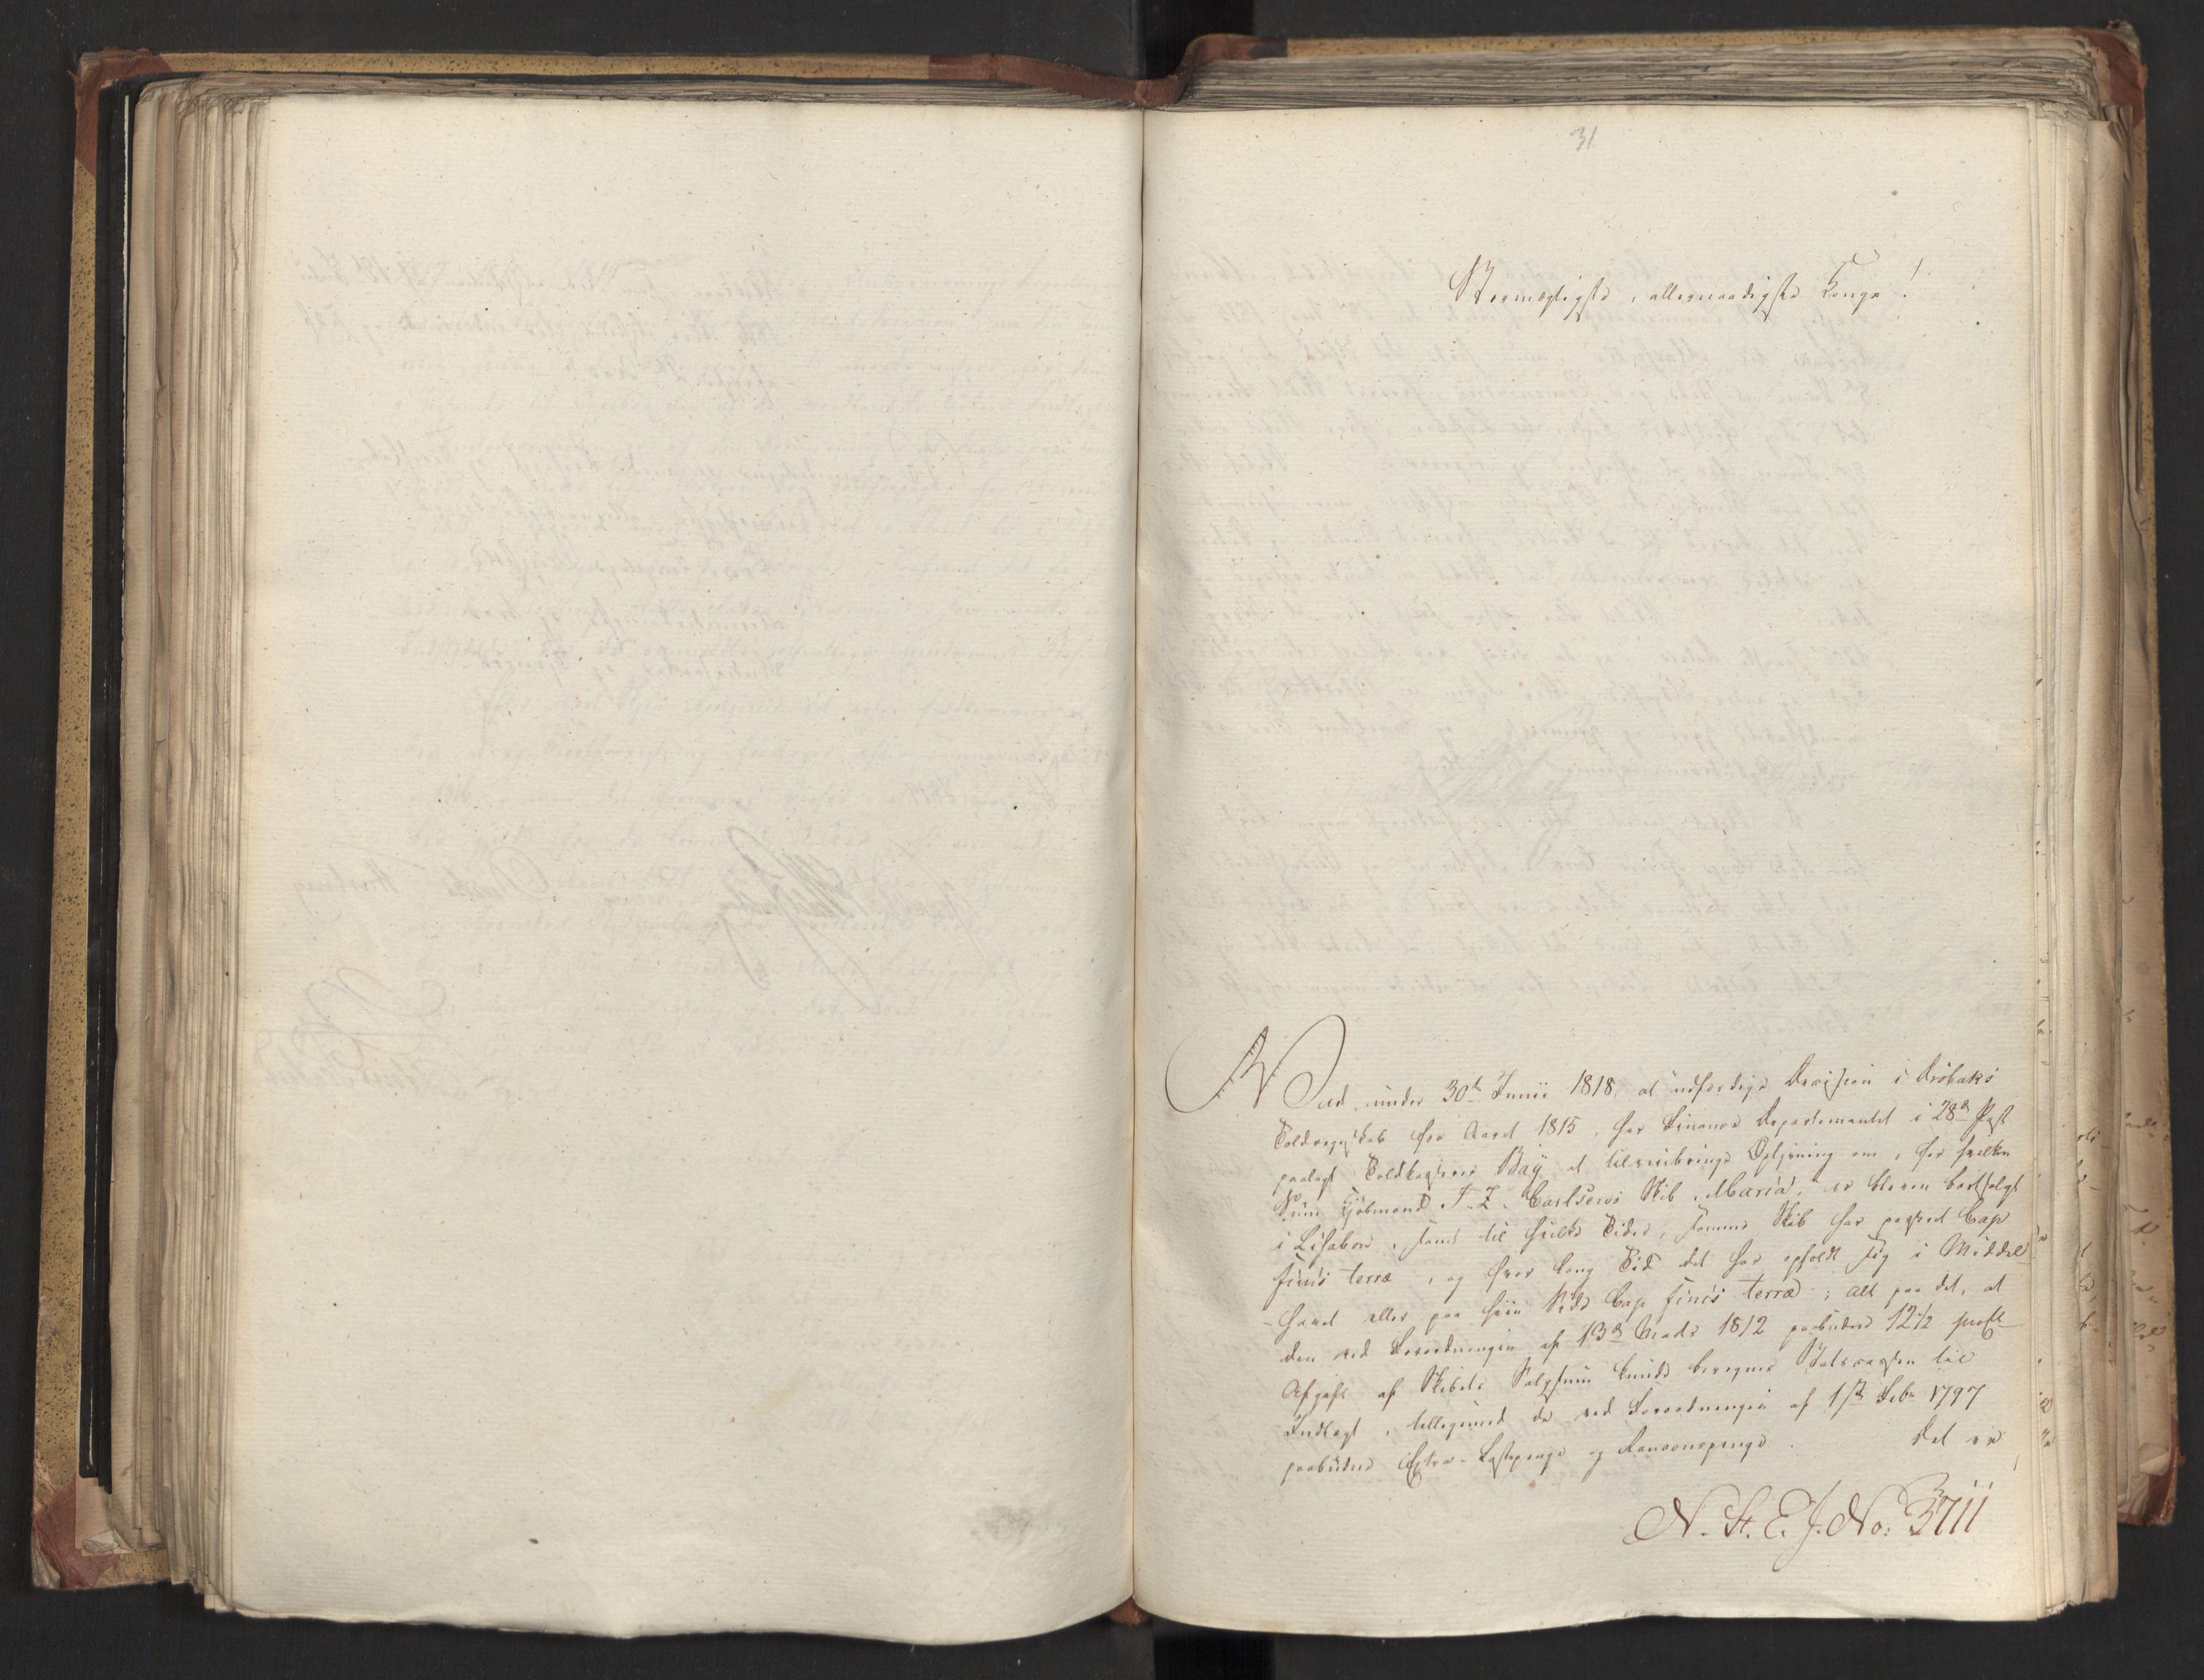 31
Stormægtigste, allernaadigste Konge!
Ved under 30te Junii 1818 at udfærdige Decision i Drøbaks
Toldregnskab for Aaret 1815, har Finance Departementet i 28de Post
paalagt Toldkasserer Bay at tilveiebringe Oplysning om, for hvilken
Sum Kjøbmand J. Z. Carlsens Skib, Maria, er bleven bortsolgt
i Lisabon, samt til hvilke Tider, samme Skib har passeret Cap
finis terræ, og hvor lang Tid det har opholdt sig i Middel-
-havet eller paa hiin Side Cap finis terræ; alt paa det, at
den ved Forordningen af 13de Marts 1812 paabudne 12½ proCt
Afgift af Skibets Salgssum kunde beregnes Statscassen til
Indtægt, tilligemed de ved Forordningen af 1ste Febr 1797
paabudne Extra-Lastepenge og Ranconspenge. Det er
N. St. E. J. No: 3711